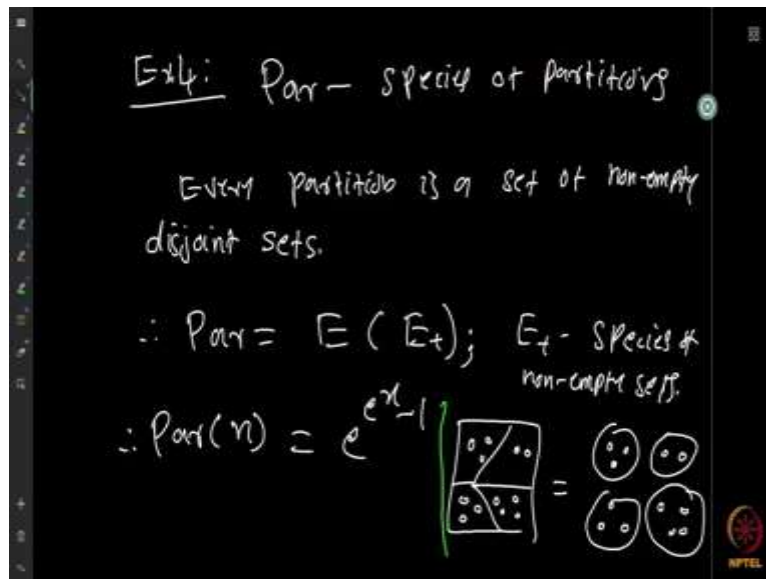 Ex4: Par - Species of partitions
Every partition is a set of non-empty
disjoint sets.
∴ Par = E(E₊); E₊ - Species of
non-empty sets.
∴ Par(x) = e^{e^x-1}
=
NPTEL